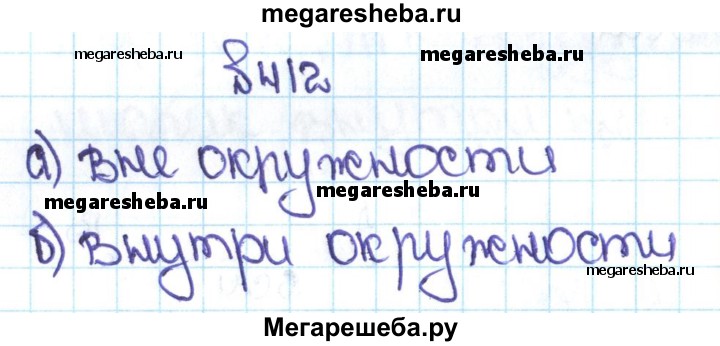 megaresheba.ru
megaresheba.ru
megaresheba.ru
№412
а) вне окружности
megaresheba.ru
megaresheba.ru
б) внутри окружности
megaresheba.ru
Мегарешеба.ру